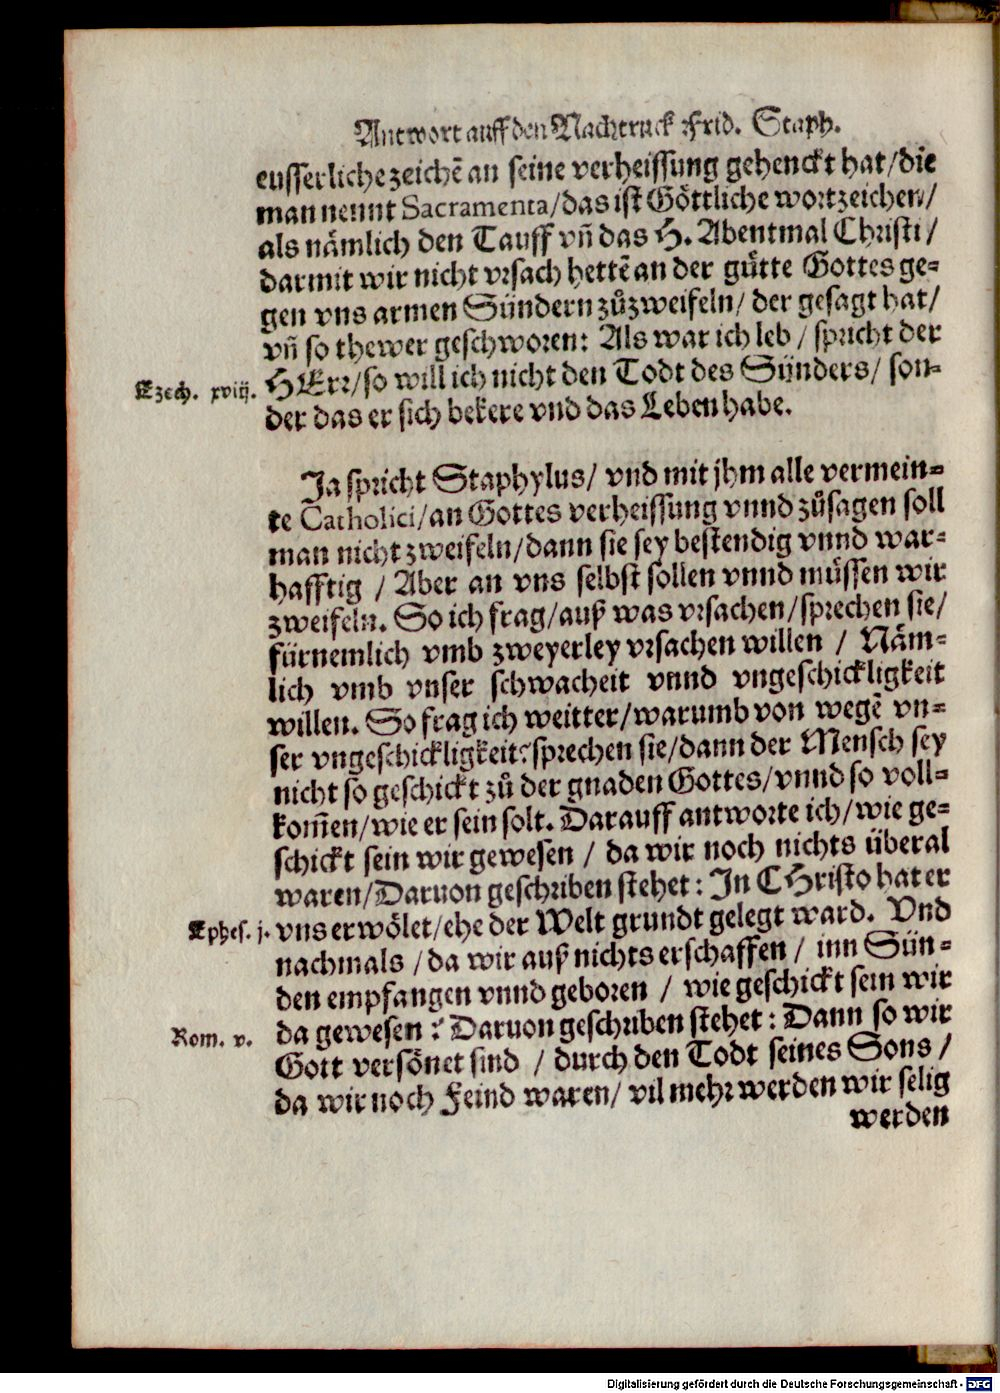 Antwort auff den Nachtruck Frid. Staph.
eusserliche zeichē an seine verheissung gehenckt hat/die
man nennt Sacramenta/das ist Göttliche wortzeichen/
als nämlich den Tauff vn̄ das H. Abentmal Christi/
darmit wir nicht vrsach hettē an der gütte Gottes ge-
gen vns armen Sündern zůzweifeln/ der gesagt hat/
vn̄ so thewer geschworen: Als war ich leb / spricht der
Ezech. xviij. HErr/so will ich nicht den Todt des Sünders/ son-
der das er sich bekere vnd das Leben habe.
Ja spricht Staphylus/ vnd mit jhm alle vermein-
te Catholici/an Gottes verheissung vnnd zůsagen soll
man nicht zweifeln/dann sie sey bestendig vnnd war-
hafftig / Aber an vns selbst sollen vnnd müssen wir
zweifeln. So ich frag/auß was vrsachen/sprechen sie/
fürnemlich vmb zweyerley vrsachen willen / Näm-
lich vmb vnser schwacheit vnnd vngeschickligkeit
willen. So frag ich weitter/warumb von wegē vn-
ser vngeschickligkeit? sprechen sie/dann der Mensch sey
nicht so geschickt zů der gnaden Gottes/vnnd so voll-
kom̄en/wie er sein solt. Darauff antworte ich/wie ge-
schickt sein wir gewesen / da wir noch nichts überal
waren/Daruon geschriben stehet: In CHristo hat er
Ephes. j. vns erwölet/ehe der Welt grundt gelegt ward. Vnd
nachmals /da wir auß nichts erschaffen / inn Sün-
den empfangen vnnd geboren / wie geschickt sein wir
Rom. v. da gewesen? Daruon geschriben stehet: Dann so wir
Gott versönet sind / durch den Todt seines Sons /
da wir noch Feind waren/ vil mehr werden wir selig
werden
Digitalisierung gefördert durch die Deutsche Forschungsgemeinschaft - DFG